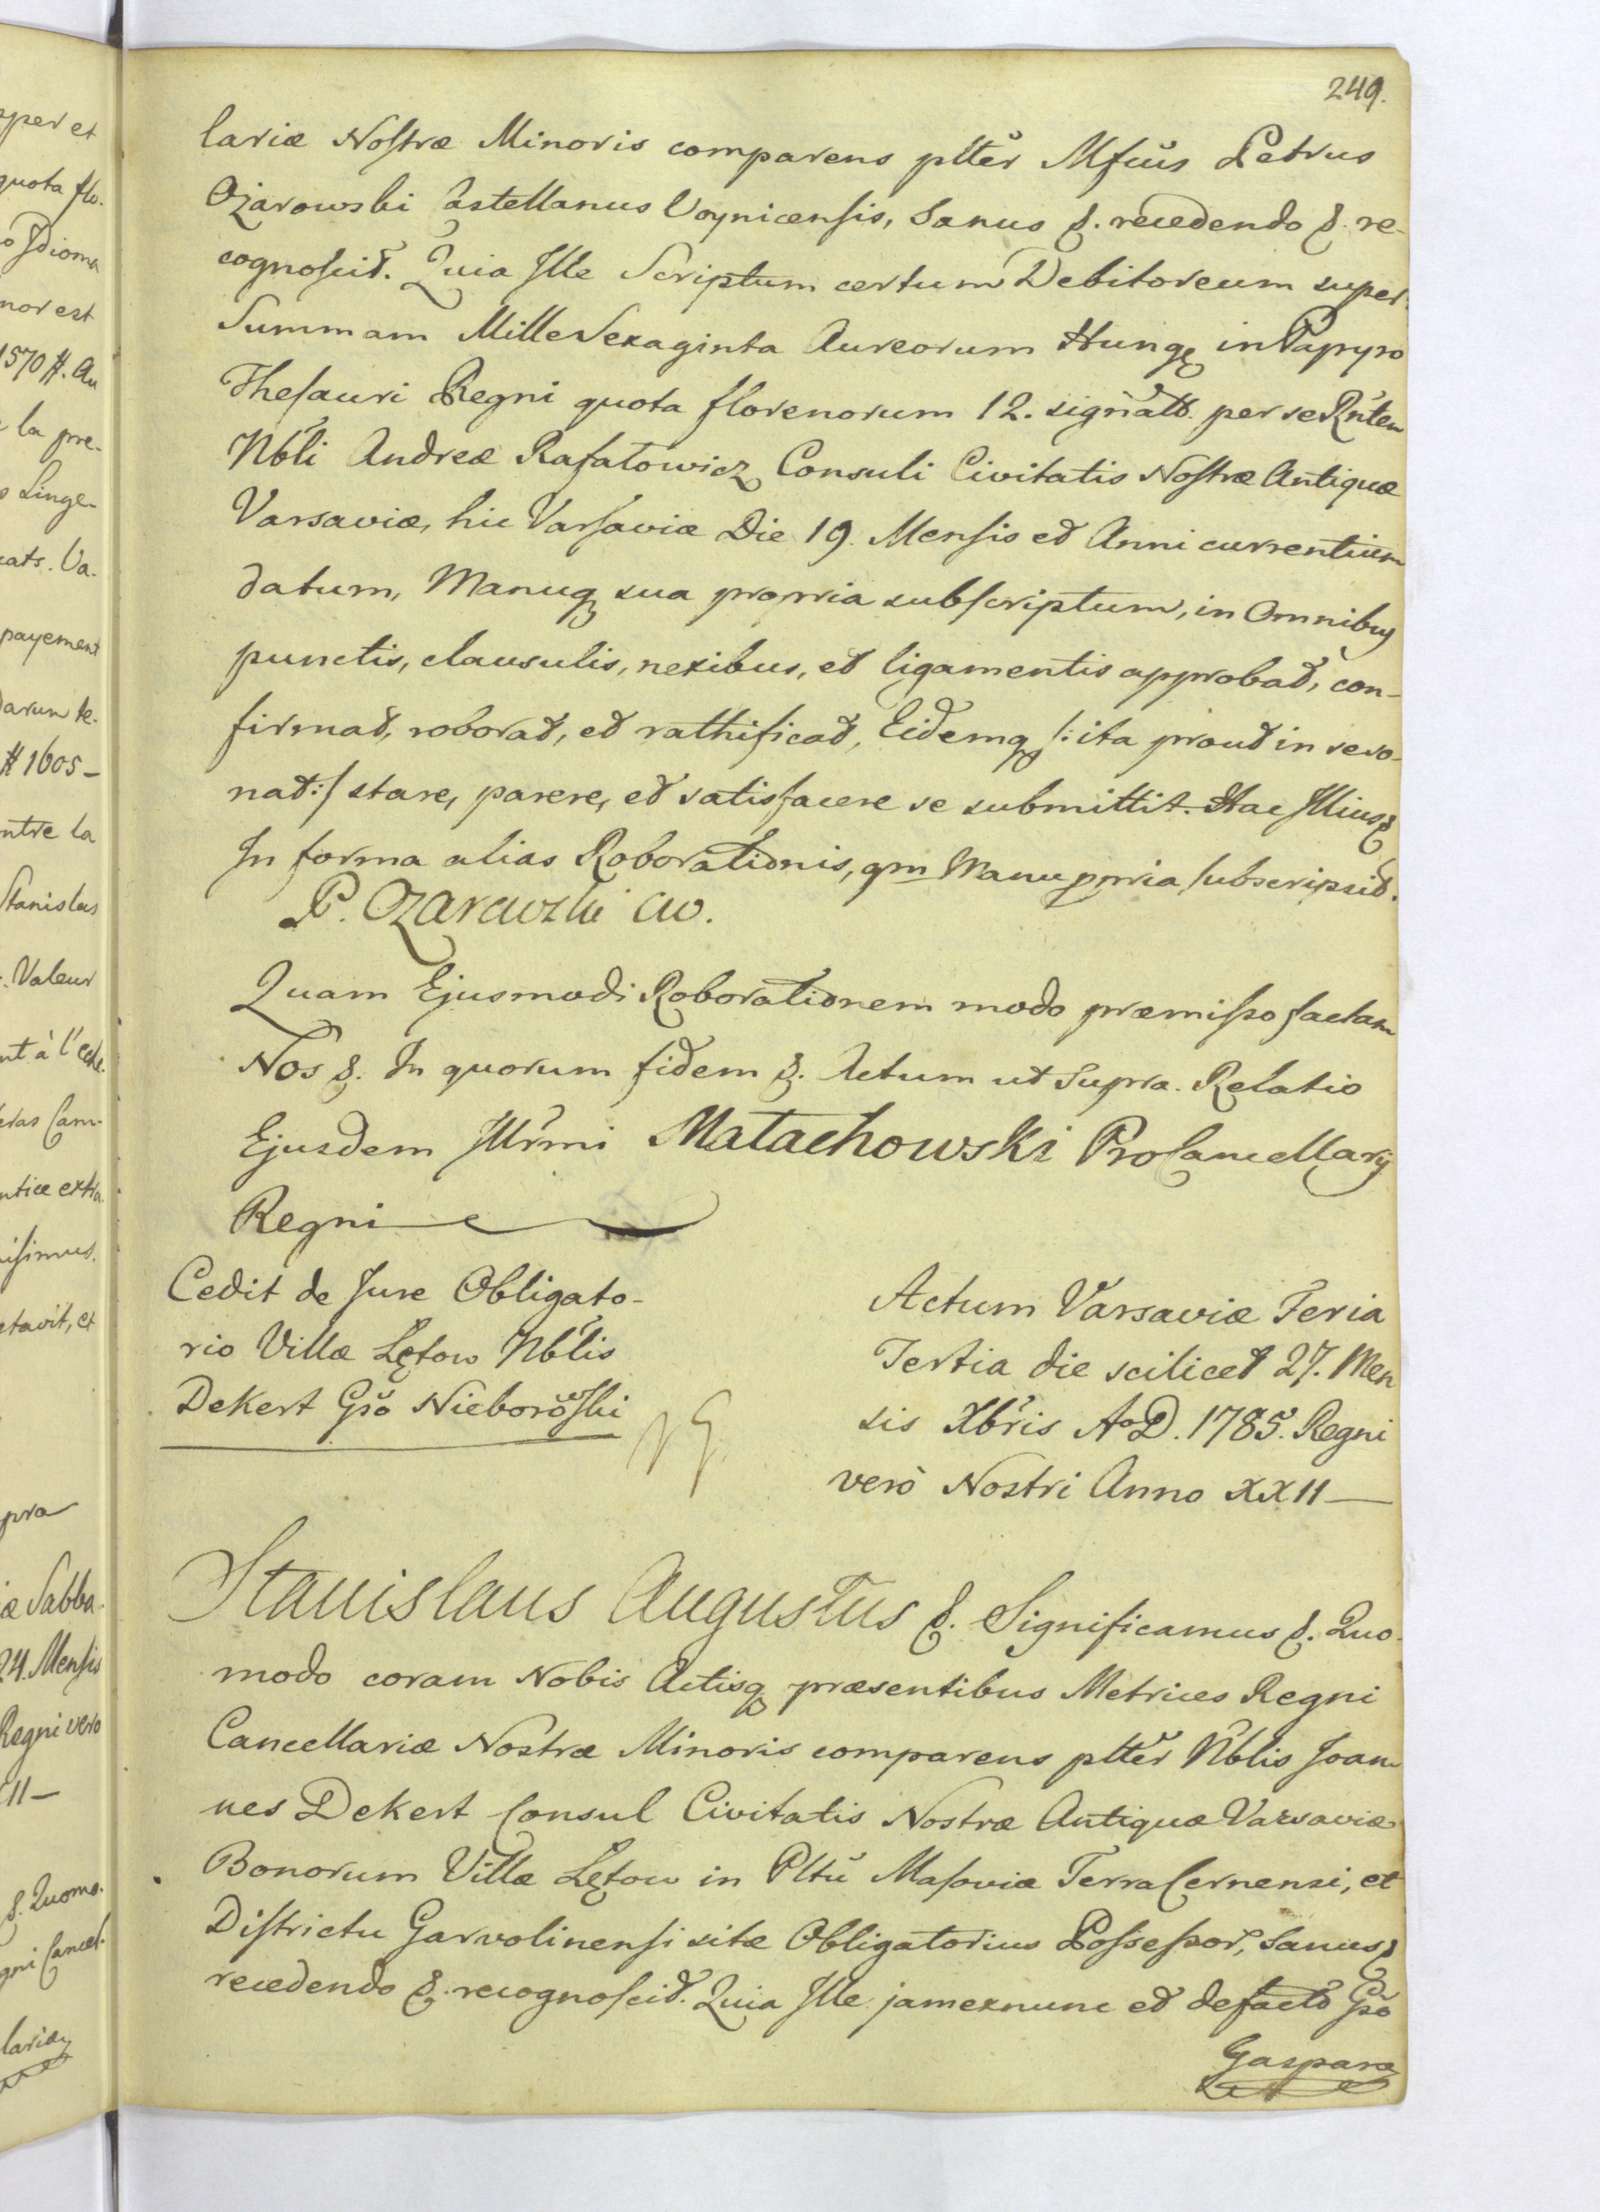 249.
lariæ Nostræ Minoris comparens pltter Mfcus Petrus
Ożarowski Castellanus Voynicensis, Sanus &. recedendo &. re-
cognoscit. Quia Ille Scriptum certum Debitoreum super
Summam Mille Sexaginta Aureorum Hungq in Papyro
Thesauri Regni quota florenorum 12. signatt. per se Rntem
Nbli Andreæ Rafałowicz Consuli Civitatis Nostræ Antiquæ
Varsaviæ, hic Varsaviæ Die 19. Mensis et Anni currentium
datum, Manuq sua propria subscriptum, in Omnibus
punctis, clausulis, nexibus, et ligamentis approbat, con-
firmat, roborat, et rathificat, Eidemq /: ita prout in reso-
nat :/ stare, parere, et satisfacere se submittit. Hac Illius &
In forma alias Roborationis, qm Manu ppria subscripsit.
P. Ozarowski CW.
Quam Ejusmodi Roborationem modo præmisso factam
Nos &. In quorum fidem &. Actum ut Supra. Relatio
Ejusdem Illrmi Małachowski ProCancellarij
Regni
Cedit de Jure Obligato-
rio Villæ Lętow Nblis
Dekert Gso Nieborowski
Actum Varsaviæ Feria
Tertia die scilicet 27. Men
sis Xbris Ao D. 1785. Regni
verò Nostri Anno XXII
Stanislaus Augustus &. Significamus &. Quo-
modo coram Nobis Actisq præsentibus Metrices Regni
Cancellariæ Nostræ Minoris comparens pltter Nblis Joan-
nes Dekert Consul Civitatis Nostræ Antiquæ Varsaviæ
Bonorum Villæ Lętow in Pltu Masoviæ Terra Cernensi, et
Districtu Garvolinensi sitæ Obligatorius Possessor, Sanus &
recedendo &. recognoscit. Quia Ille jam exnunc et de facto Gso
Gaspara